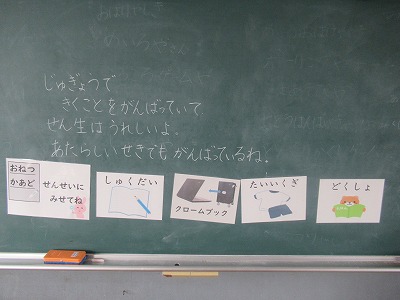 じゅぎょうで
きくことをがんばっていて
せん生はうれしいよ。
あたらしいせきでもがんばっているね。
おねつ
かあど
せんせいに
みせてね
しゅくだい
クロームブック
たいいくぎ
どくしょ